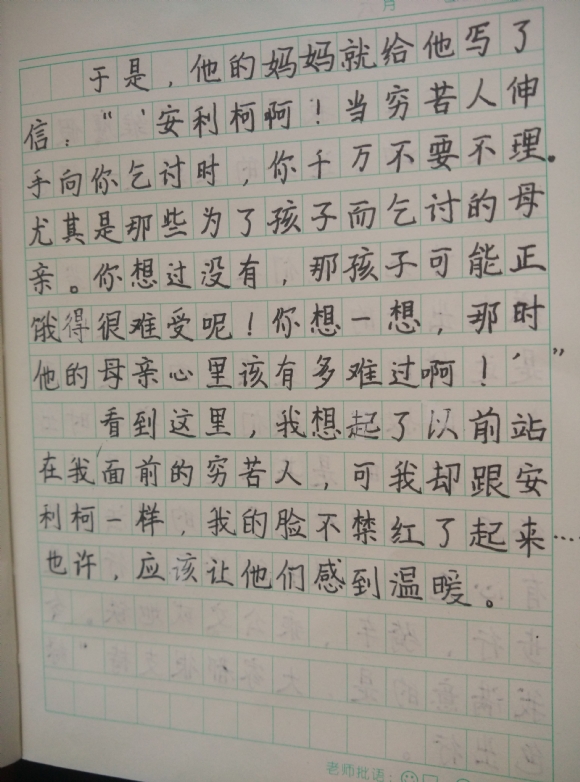 月
于是，他的妈妈就给他写了
信：“‘安利柯啊！当穷苦人伸
手向你乞讨时，你千万不要不理。
尤其是那些为了孩子而乞讨的母
亲。你想过没有，那孩子可能正
饿得很难受呢！你想一想，那时
他的母亲心里该有多难过啊！’”
看到这里，我想起了以前站
在我面前的穷苦人，可我却跟安
利柯一样，我的脸不禁红了起来…
也许，应该让他们感到温暖。
老师批语：